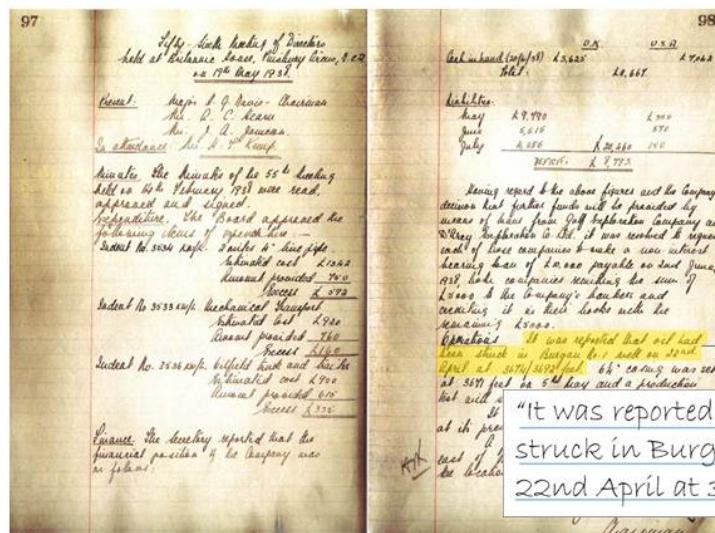 97
Fifty-Sixth Meeting of Directors
held at Britannic House, Finsbury Circus, E.C.2
on 19th May 1938.
Present: Major
Mr. A. C. Hearn
Mr. J. A. Jameson.
In attendance: Mr. Kemp
Minutes. The Minutes of the 55th Meeting
held on 14th February 1938 were read,
approved and signed.
Expenditure. The Board approved the
following items of expenditure:-
Indent No. 3534 2 miles 4" line pipe
Estimated cost £1342
Amount provided 750
Excess £ 592
Indent No. 3533 Mechanical Transport
Estimated Cost £920
Amount provided 760
Excess £160
Indent No. 3536 Oilfield truck and trailer
Estimated cost £950
Amount provided 615
Excess £335
Finance. The Secretary reported that the
financial position of the Company was
as follows:
98
U.K. U.S.A.
Cash in hand £3,625 £7,042
Total: £10,667
Liabilities.
May £9,790
June 5,615 570
July £20,460 150
DEFICIT: £9,793
Having regard to the above figures and the Company's
decision that further funds will be provided by
means of loans from Gulf Exploration Company and
D'Arcy Exploration Co. Ltd. it was resolved to request
each of these companies to make a non interest
bearing loan of £10,000 payable on 2nd June,
1938, both companies remitting the sum of
£5000 to the Company's bankers and
crediting it in their books with the
remaining £5000.
Operations It was reported that oil had
been struck in Burgan No. 1 well on 22nd
April at 3674/3692 feet. 6⅝" casing was set
at 3671 feet on 5th May and a production
test will
It
at its pre
A
east of
the locatio
Chairman
"It was reported
struck in Burg
22nd April at 3